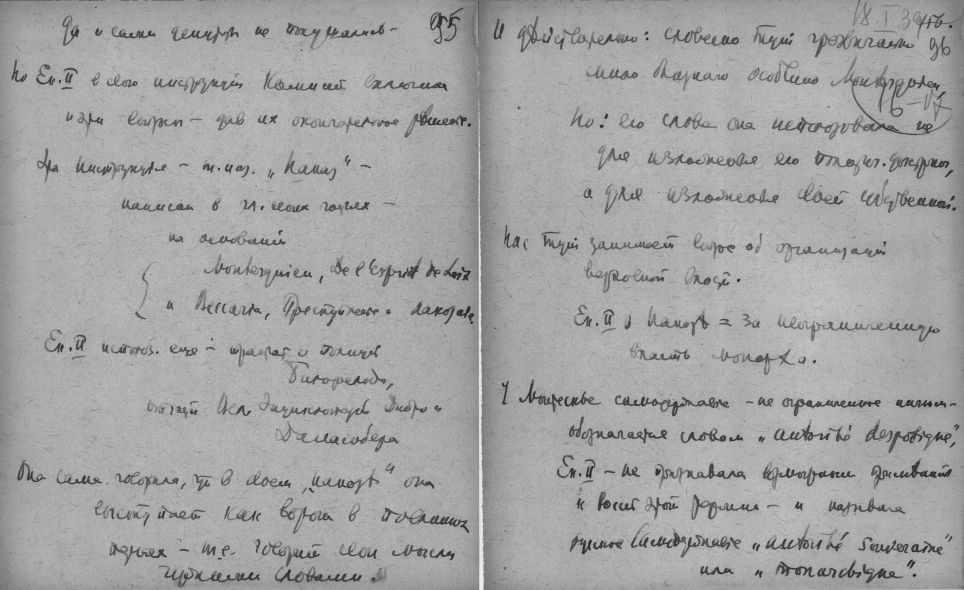 да и сами депутаты не покушались –
95
Но Ек. II в свою инструкцию Комиссии включила
и эти вопросы – дав их окончательное решение.
Эта инструкция – т. наз. „Наказ" –
написан в
на основании
Montesquieu, De l'Esprit de Loix
и Беккария, Преступление и наказание
Ек. II использ. еще – трактат о полиции
Бильфельда,
статьи Энциклопедии Дидро и
Деламбера
Она сама говорила, что в своем „Наказе" она
выступает как ворона в павлиных
перьях – т.е. говорит свои мысли
чужими словами.
18.I 39
96
И действительно: словесно тут чрезвычайно
много взятого особенно Монтескье
Но: его слова она использовала не
для изложения его доктрины,
а для изложения своей собственной.
Нас тут занимает вопрос об организации
верховной власти.
Ек. II в Наказе = за неограниченную
власть монарха.
У Монтескье самодержавие – не ограниченное ничем –
обозначается словом „autorité despotique",
Ек. II – не признавала возможным применять
к России этот термин – и называла
русское самодержавие „autorité souveraine"
или „monarchique".